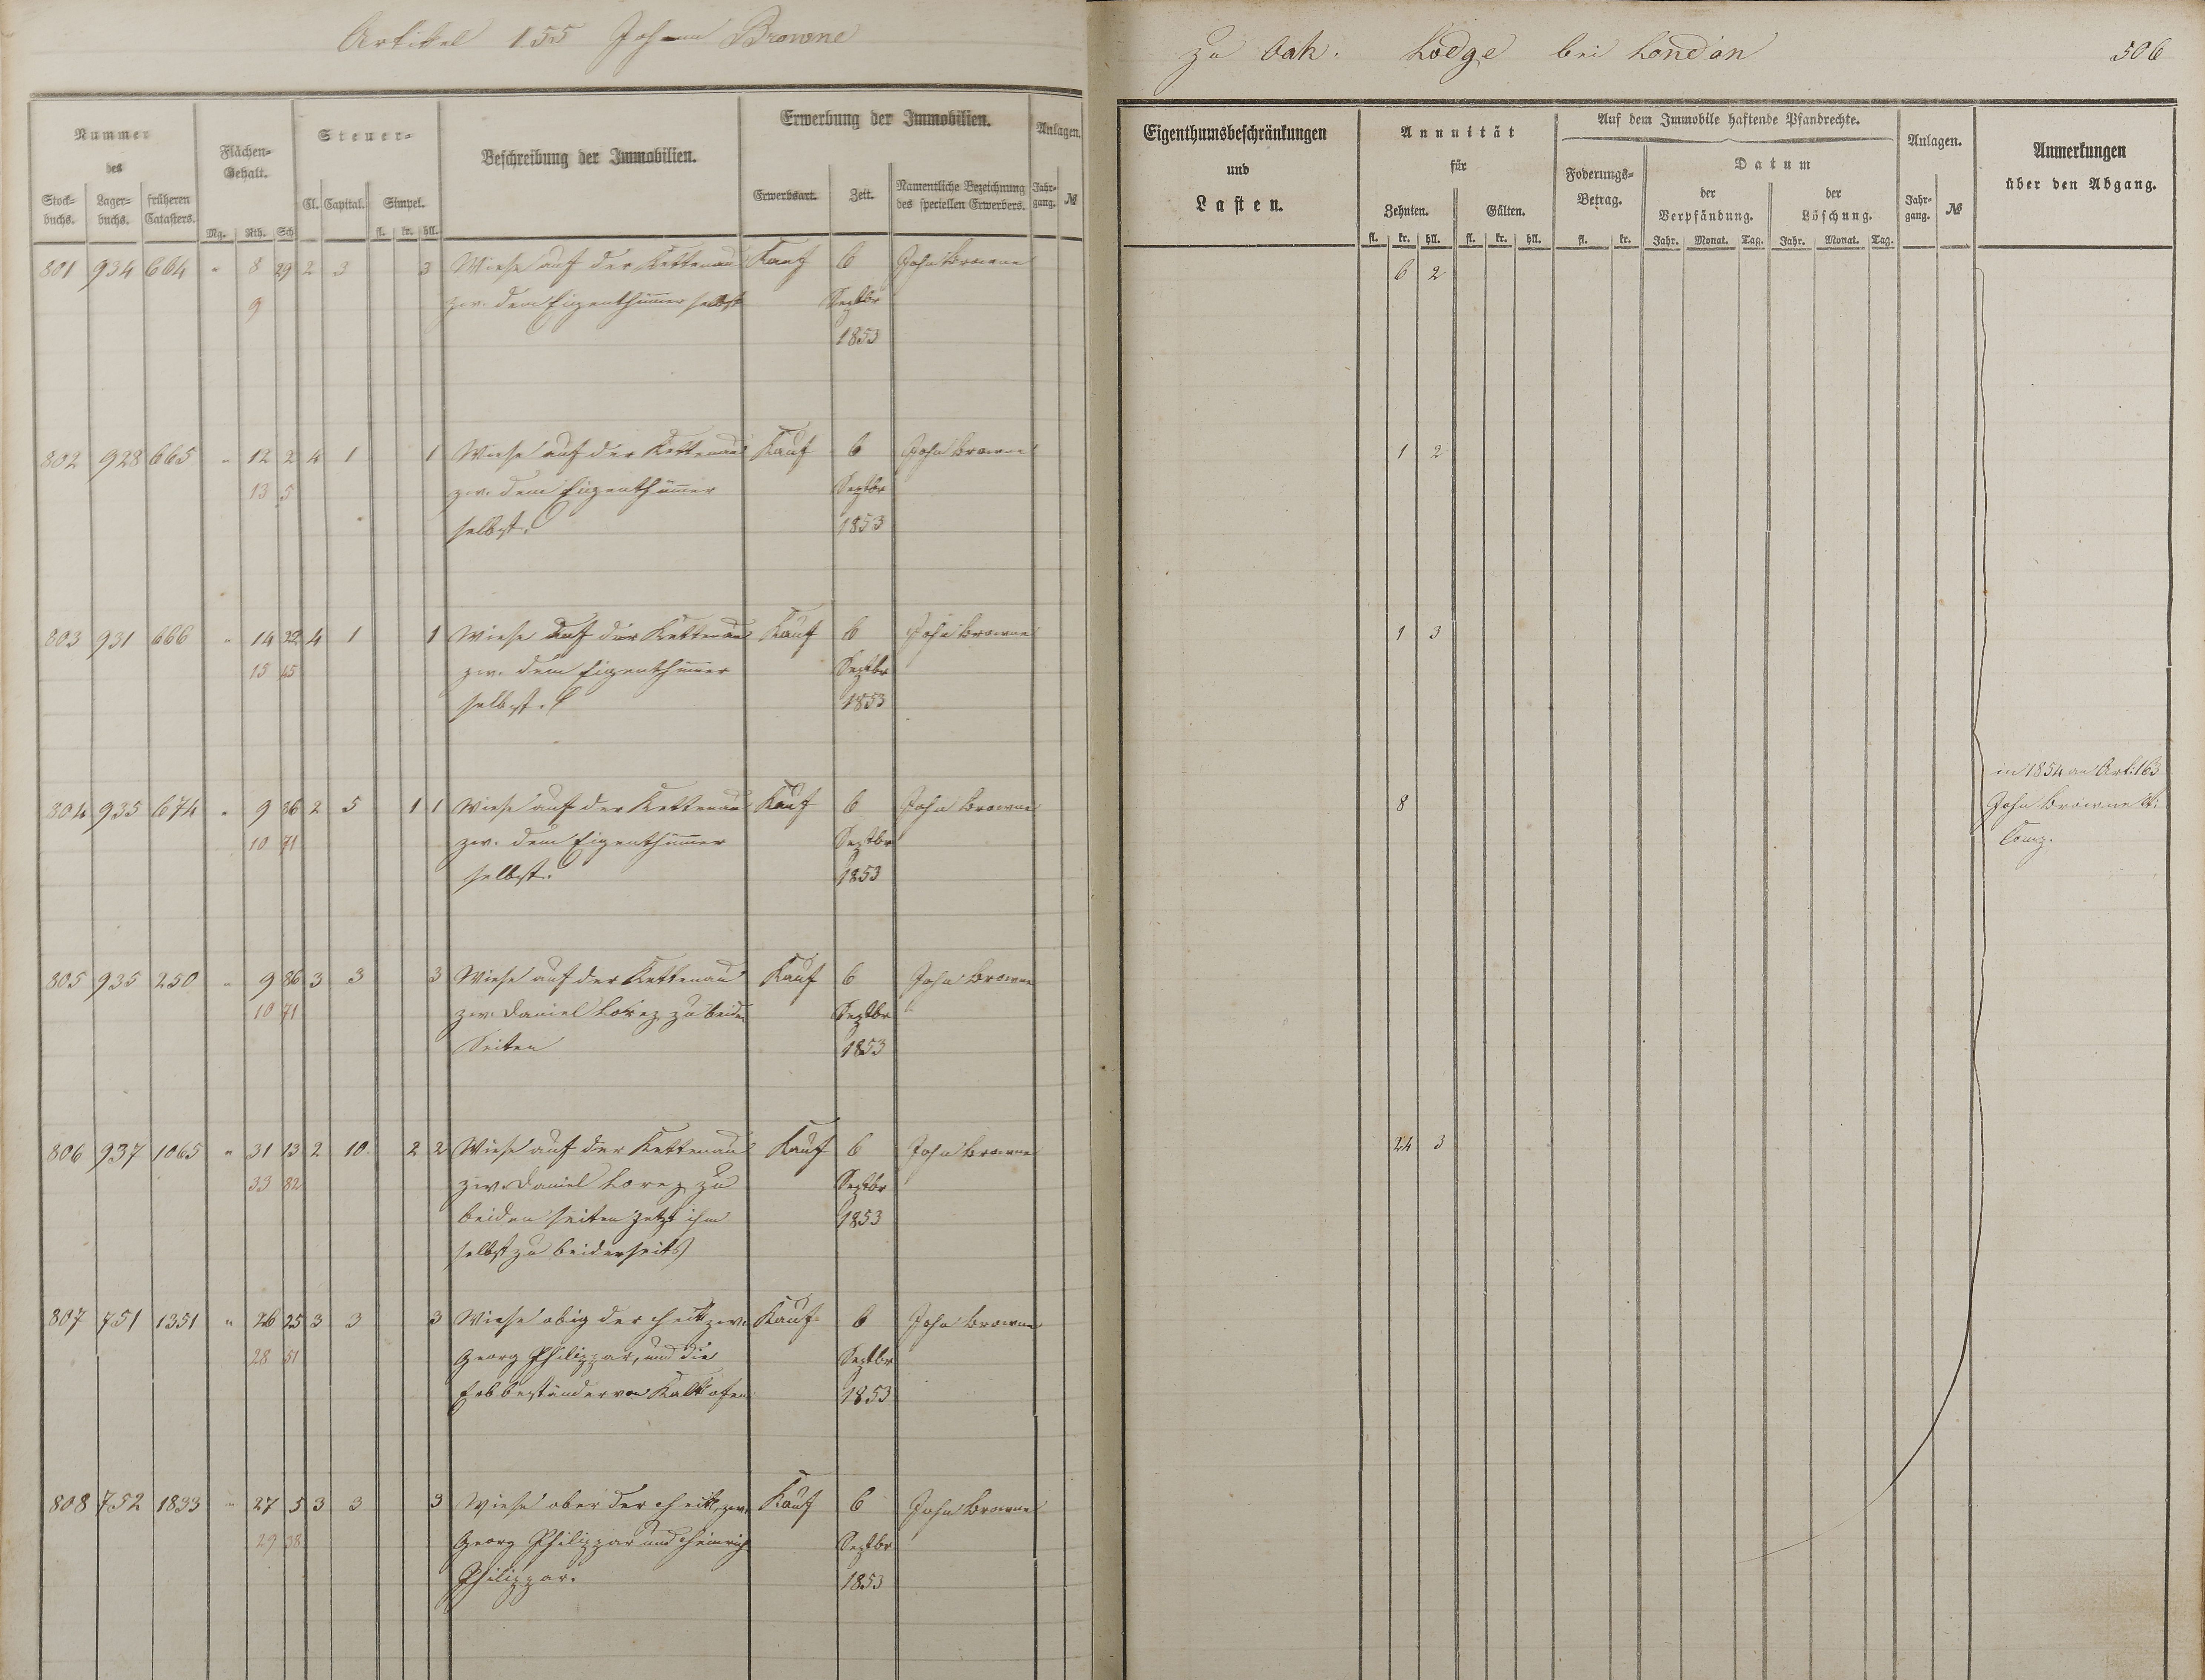 Artikel 155 Johann Browne
zu Oak. Lodge bei London
506
Nummer
des
Stock-
buchs.
Lager-
buchs.
früheren
Catasters.
Flächen-
Gehalt.
Mg. Rth. Sch
Steuer-
Cl. Capital. Simpel.
fl. kr. hll.
Beschreibung der Immobilien.
Erwerbung der Immobilien.
Erwerbsart. Zeit.
Namentliche Bezeichnung
des speciellen Erwerbers.
Anlagen.
Jahr-
gang.
№
Eigenthumsbeschränkungen
und
Lasten.
Annuität
für
Zehnten. Gülten.
fl. kr. hll. fl. kr. hll.
Auf dem Immobile haftende Pfandrechte.
Foderungs-
Betrag.
fl. kr.
Datum
der
Verpfändung.
der
Löschung.
Jahr. Monat. Tag. Jahr. Monat. Tag.
Anlagen.
Jahr-
gang.
№
Anmerkungen
über den Abgang.
801 934 664 " 8 29 2 3 3 Wiese auf der Kettenau Kauf 6 John Browne 6 2
9 zw. dem Eigenthümer selbst Septbr
1853
802 928 665 " 12 2 4 1 1 Wiese auf der Kettenau Kauf 6 John Browne 1 2
13 5 zw. dem Eigenthümer Septbr
selbst. 1853
803 931 666 " 14 22 4 1 1 Wiese auf der Kettenau Kauf 6 John Browne 1 3
15 45 zw. dem Eigenthümer Septbr
selbst. 1853
in 1854 an Art: 163
804 935 674 " 9 86 2 5 1 1 Wiese auf der Kettenau Kauf 6 John Browne 8 John Browne &
10 71 zw. dem Eigenthümer Septbr Comp.
selbst. 1853
805 935 250 " 9 86 3 3 3 Wiese auf der Kettenau Kauf 6 John Browne
10 71 zw. Daniel Lorez zu beiden Septbr
Seiten 1853
806 937 1065 " 31 13 2 10 2 2 Wiese auf der Kettenau Kauf 6 John Browne 24 3
33 82 zw. Daniel Lorez zu Septbr
beiden Seiten jetzt ihm 1853
selbst zu beiderseits
807 751 1351 " 26 25 3 3 3 Wiese obig der zw. Kauf 6 John Browne
28 51 Georg Philippar, und die Septbr
Erbbeständer von Kalkofen 1853
808 752 1833 " 27 5 3 3 3 Wiese ober der zw. Kauf 6 John Browne
29 38 Georg Philippar und Heinrich Septbr
Philippar. 1853